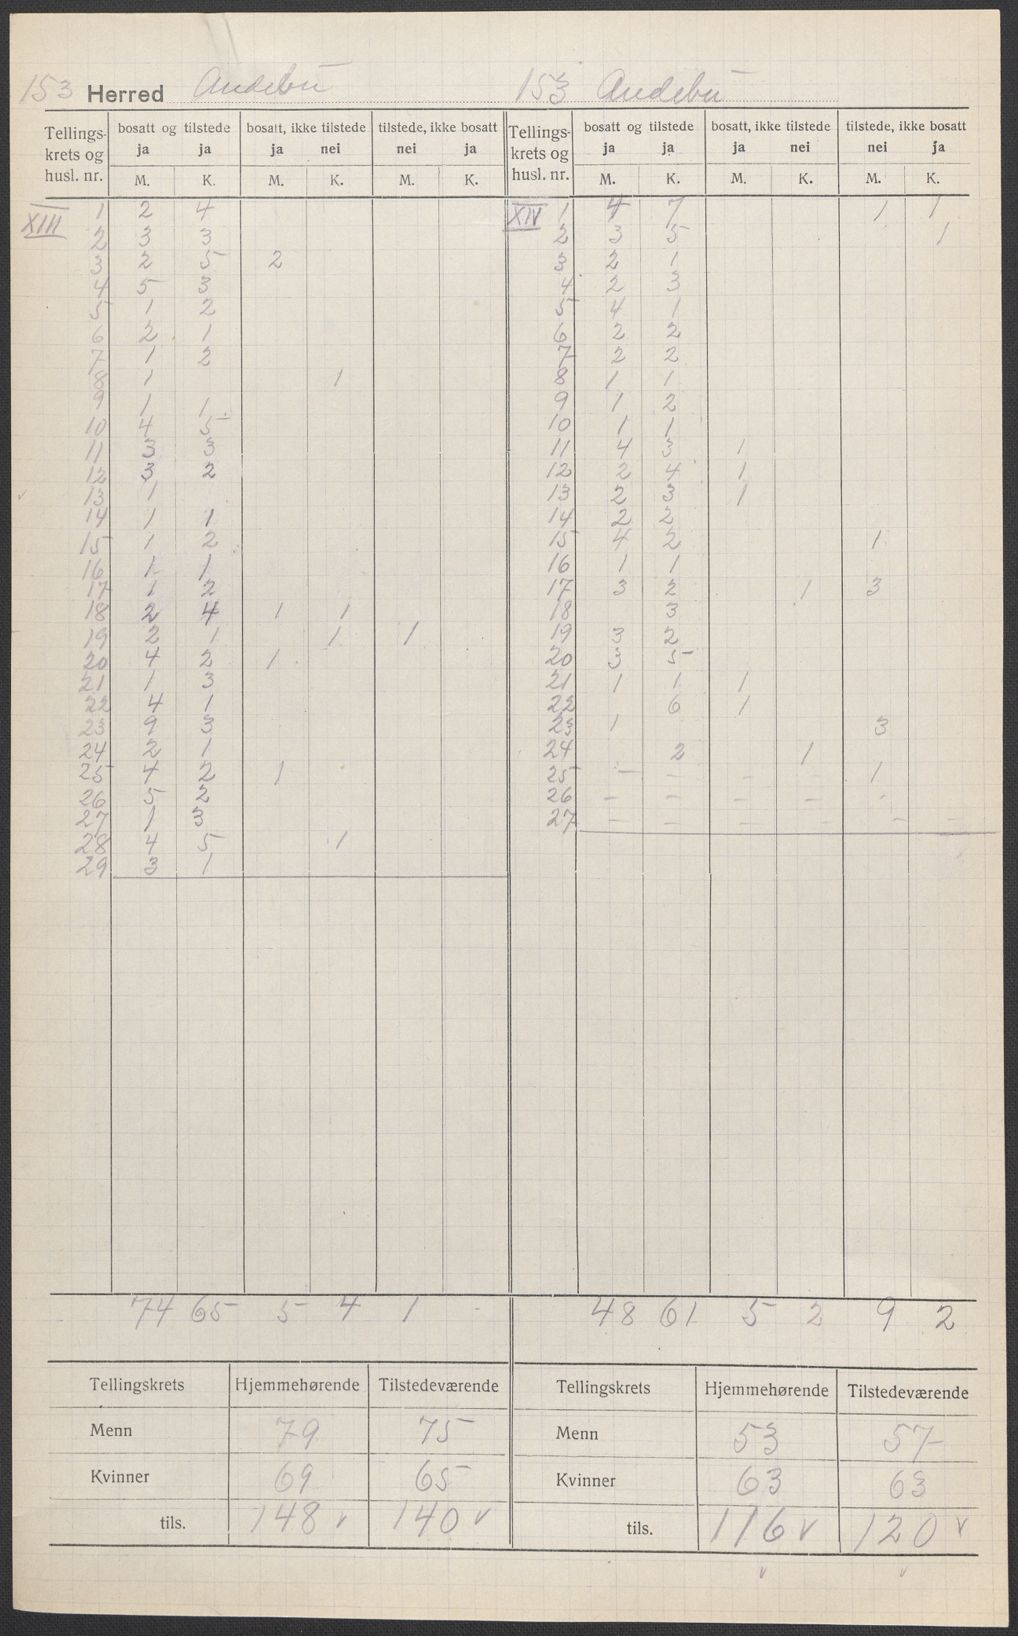 153 Herred Andebu 153 Andebu
Tellings- krets og husl. nr. | bosatt og tilstede | bosatt, ikke tilstede | tilstede, ikke bosatt | Tellings- krets og husl. nr. | bosatt og tilstede | bosatt, ikke tilstede | tilstede, ikke bosatt
ja ja ja nei nei ja ja ja ja nei nei ja
M. K. M. K. M. K. M. K. M. K. M. K.
XIII 1 2 4 | XIV 1 4 7 1 1
2 3 3 | 2 3 5 1
3 2 5 2 | 3 2 1
4 5 3 | 4 2 3
5 1 2 | 5 4 1
6 2 1 | 6 2 2
7 1 2 | 7 2 2
8 1 1 | 8 1 1
9 1 1 | 9 1 2
10 4 5 | 10 1 1
11 3 3 | 11 4 3 1
12 3 2 | 12 2 4 1
13 1 | 13 2 3 1
14 1 1 | 14 2 2
15 1 2 | 15 4 2 1
16 1 1 | 16 1 1
17 1 2 | 17 3 2 1 3
18 2 4 1 1 | 18 3
19 2 1 1 1 | 19 3 2
20 4 2 1 | 20 3 5
21 1 3 | 21 1 1 1
22 4 1 | 22 6 1
23 9 3 | 23 1 3
24 2 1 | 24 2 1
25 4 2 1 | 25 - - - 1
26 5 2 | 26 - - - - -
27 1 3 | 27 - - - - - -
28 4 5 1
29 3 1
74 65 5 4 1 - | 48 61 5 2 9 2
Tellingskrets Hjemmehørende Tilstedeværende | Tellingskrets Hjemmehørende Tilstedeværende
Menn 79 75 | Menn 53 57
Kvinner 69 65 | Kvinner 63 63
tils. 148 v 140 v | tils. 116 v 120 v
v v